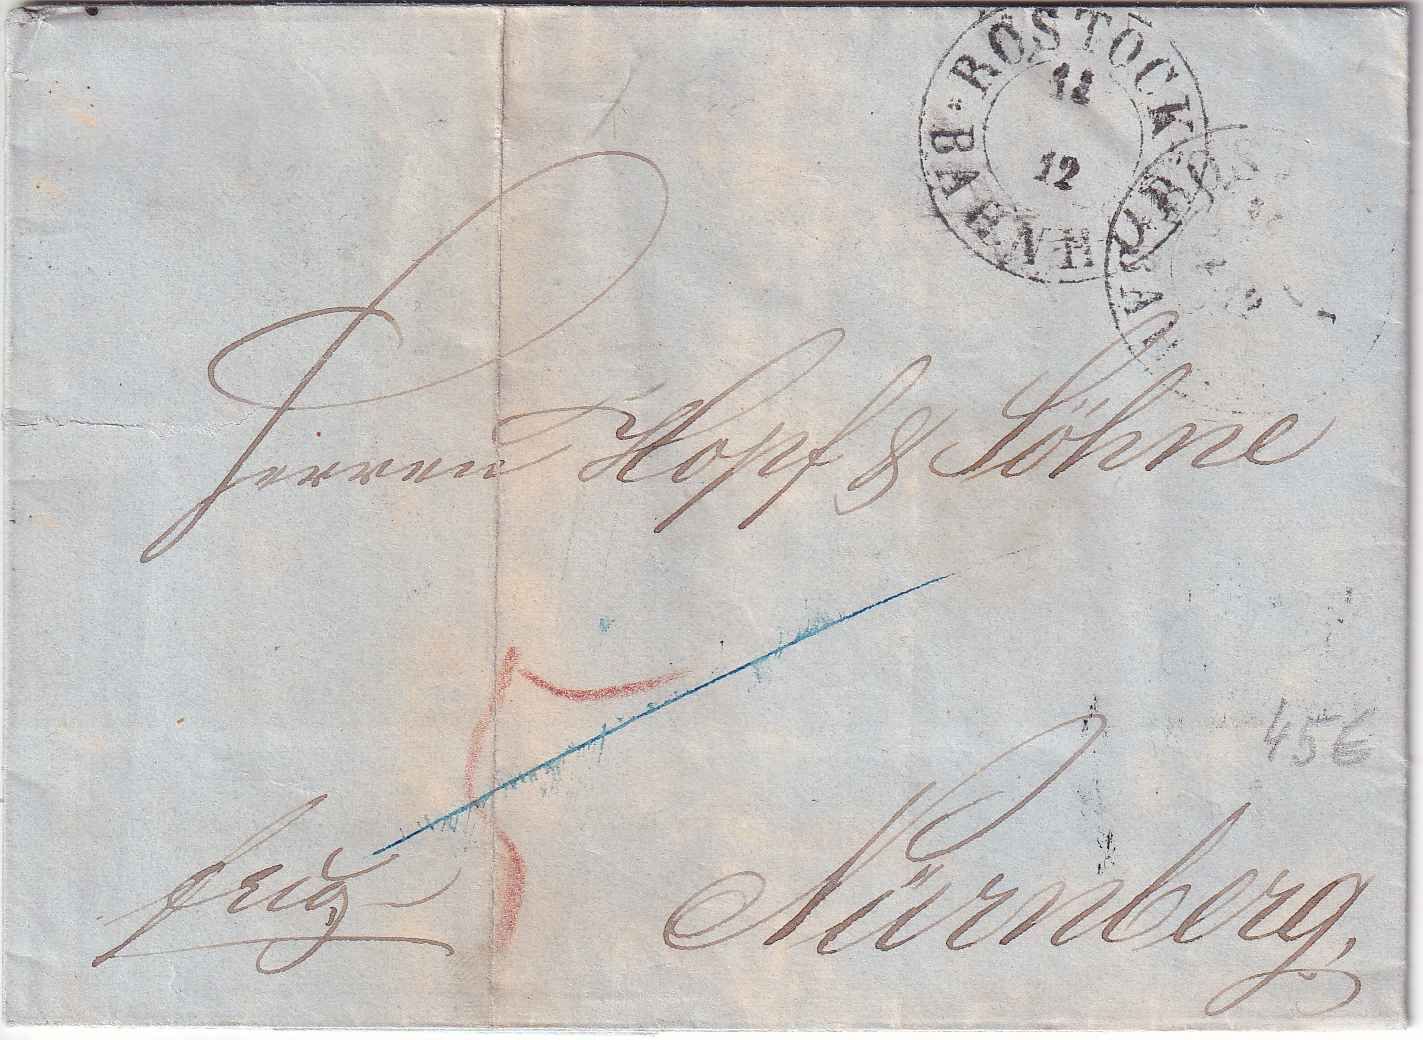 ROSTOCK
BAHNH
11
12
Herren Hopf & Söhne
5
45€
Nürnberg.